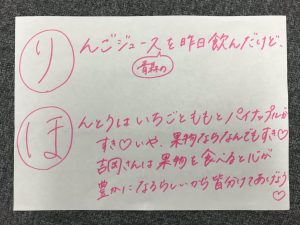 りんごジュースを昨日飲んだけど、
青森の
ほんとうはいちごとももとパイナップルが
すき♡いや、果物ならなんでもすき♡
吉岡さんは果物を食べると心が
豊かになるらしいから皆分けてあげよう
♡